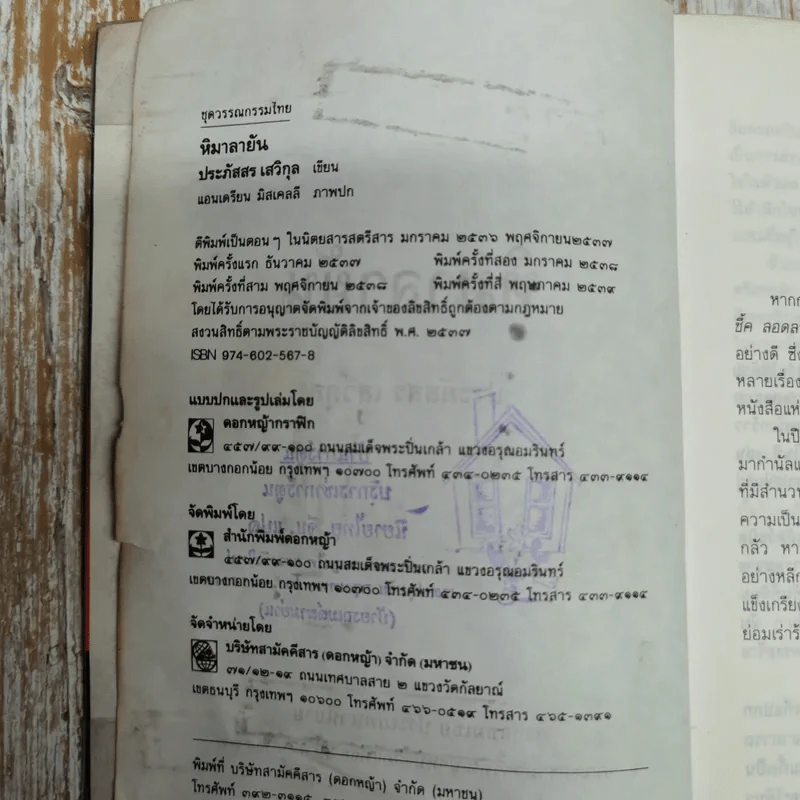 ชุดวรรณกรรมไทย
หิมาลายัน
ประภัสสร เสวิกุล เขียน
แอนเดรียน มิสเคลลี ภาพปก
ตีพิมพ์เป็นตอนๆ ในนิตยสารสตรีสาร มกราคม ๒๕๓๖ พฤศจิกายน๒๕๓๗
พิมพ์ครั้งแรก ธันวาคม ๒๕๓๗ พิมพ์ครั้งที่สอง มกราคม ๒๕๓๘
พิมพ์ครั้งที่สาม พฤศจิกายน ๒๕๓๘ พิมพ์ครั้งที่สี่ พฤษภาคม ๒๕๓๙
โดยได้รับการอนุญาตจัดพิมพ์จากเจ้าของลิขสิทธิ์ถูกต้องตามกฎหมาย
สงวนสิทธิ์ตามพระราชบัญญัติลิขสิทธิ์ พ.ศ. ๒๕๓๗
ISBN 974-602-567-8
แบบปกและรูปเล่มโดย
ดอกหญ้ากราฟิก
๔๕๗/๙๙-๑๐๐ ถนนสมเด็จพระปิ่นเกล้า แขวงอรุณอมรินทร์
เขตบางกอกน้อย กรุงเทพฯ ๑๐๗๐๐ โทรศัพท์ ๔๓๔-๐๒๓๕ โทรสาร ๔๓๓-๙๑๑๔
จัดพิมพ์โดย
สำนักพิมพ์ดอกหญ้า
๔๕๗/๙๙-๑๐๐ ถนนสมเด็จพระปิ่นเกล้า แขวงอรุณอมรินทร์
เขตบางกอกน้อย กรุงเทพฯ ๑๐๗๐๐ โทรศัพท์ ๔๓๔-๐๒๓๕ โทรสาร ๔๓๓-๙๑๑๔
จัดจำหน่ายโดย
บริษัทสามัคคีสาร (ดอกหญ้า) จำกัด (มหาชน)
๗๑/๑๒-๑๙ ถนนเทศบาลสาย ๒ แขวงวัดกัลยาณ์
เขตธนบุรี กรุงเทพฯ ๑๐๖๐๐ โทรศัพท์ ๔๖๖-๐๕๑๙ โทรสาร ๔๖๕-๑๓๙๑
พิมพ์ที่ บริษัทสามัคคีสาร (ดอกหญ้า) จำกัด (มหาชน)
โทรศัพท์ ๓๙๒-๓๑๑๕
หาก
ชี้ค ลอดล
อย่างดี ซึ่
หลายเรื่อง
หนังสือแห่
ในปี
มากำนัลแ
ที่มีสำนวน
ความเป็น
กลัว หา
อย่างหลีก
แข็งเกรีย
ย่อมเร่าร้